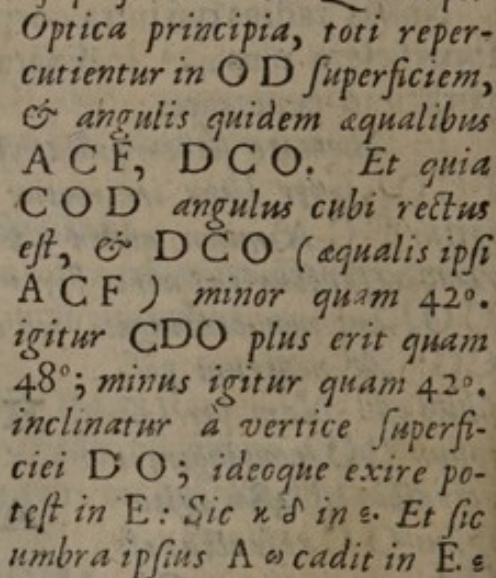 Optica principia, toti reper-
cutientur in O D ſuperficiem,
& angulis quidem æqualibus
A C F, D C O. Et quia
C O D angulus cubi rectus
eſt, & D C O (æqualis ipſi
A C F) minor quam 42°.
igitur CDO plus erit quam
48°; minus igitur quam 42°.
inclinatur à vertice ſuperfi-
ciei D O; ideoque exire po-
teſt in E: Sic ϰ δ in ε. Et ſic
umbra ipſius A ω cadit in E. ε